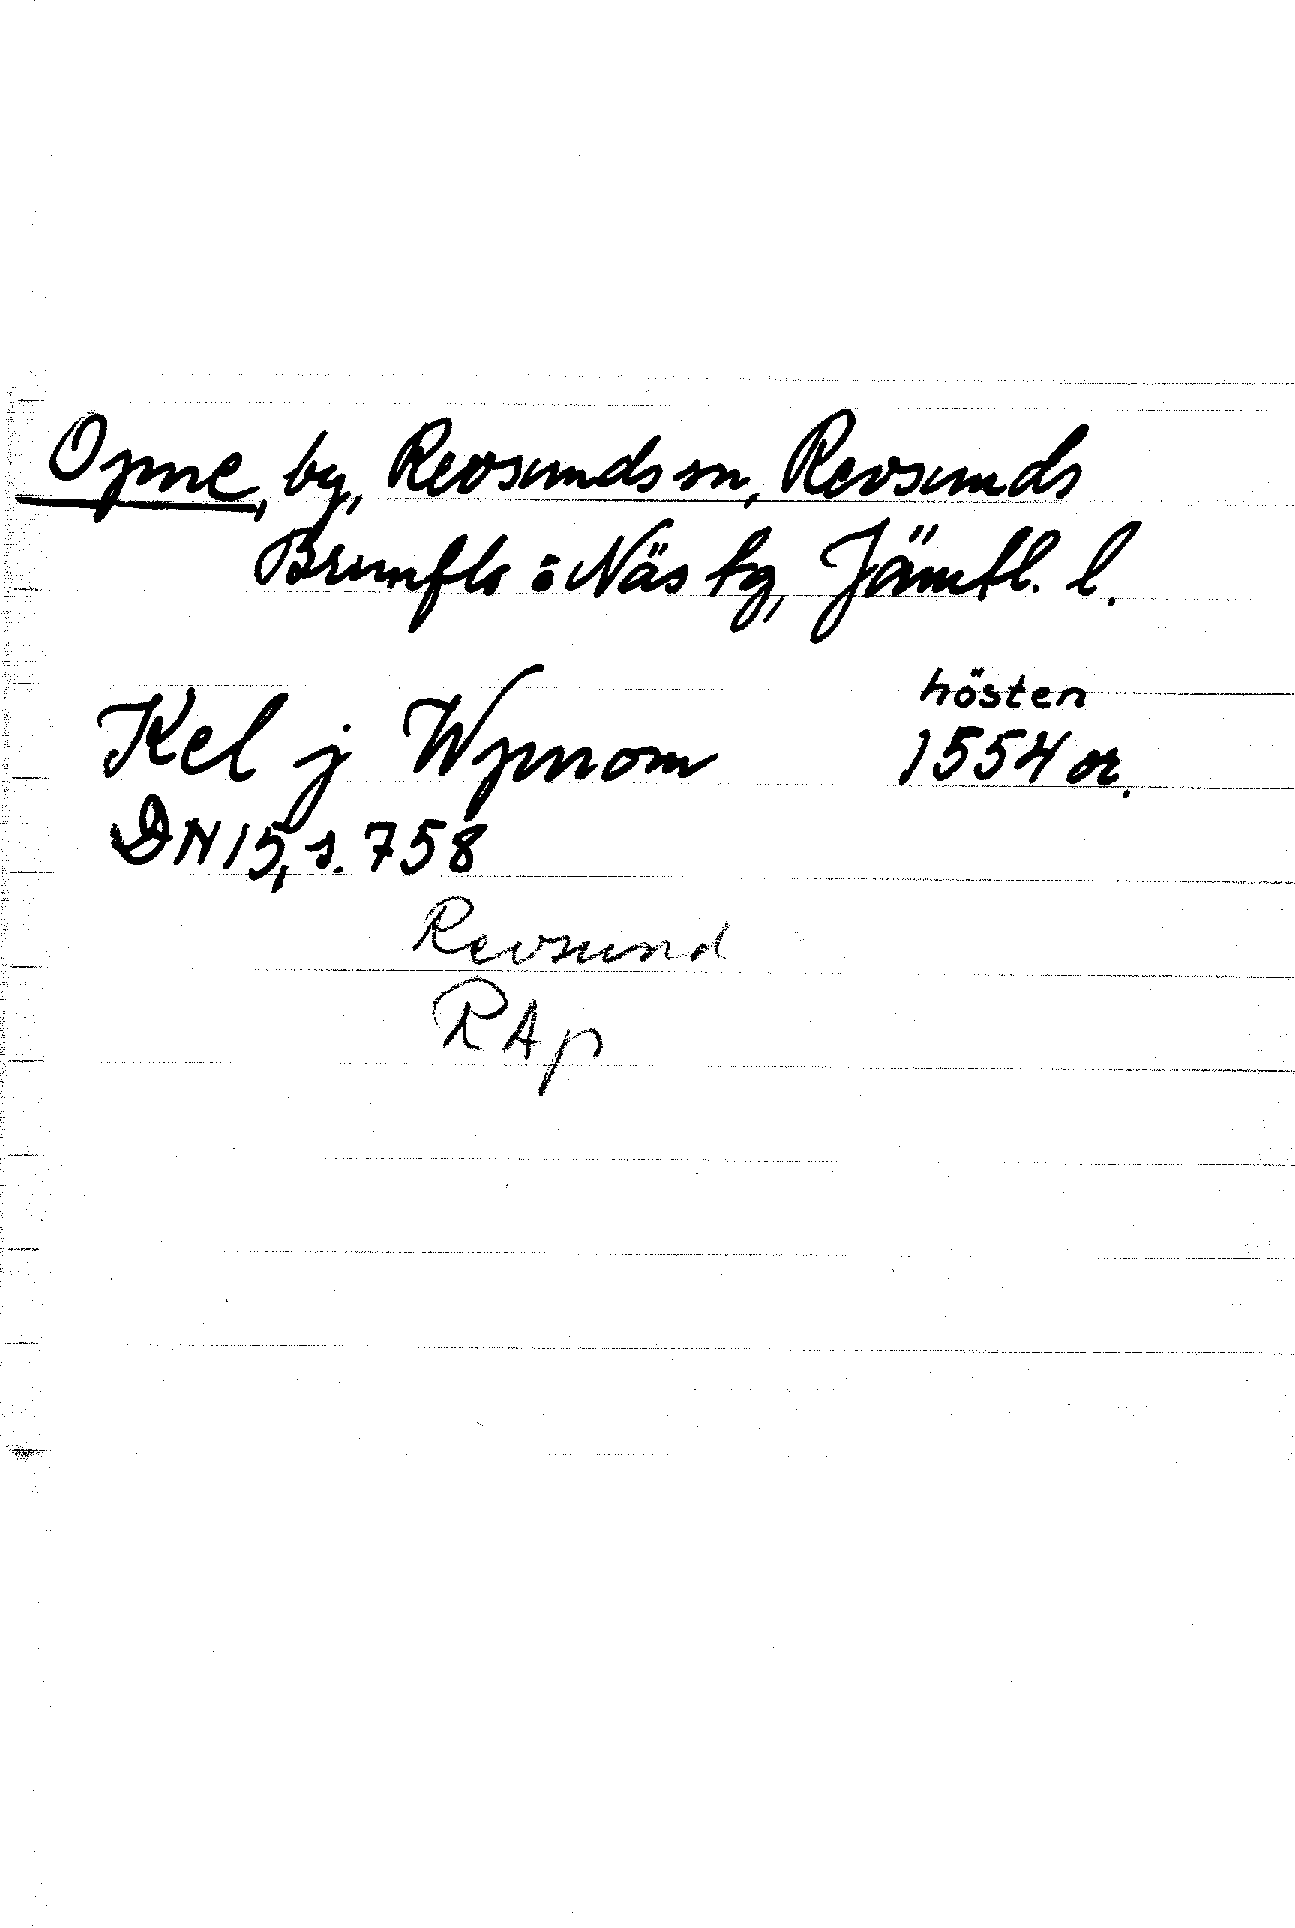 Opne, by, Revsunds sn, Revsunds
Brunflo o Näs tg, Jämtl. l.
hösten
Kel j Wpnom 1554 or.
DN 15, s. 758
Revsund
RAp